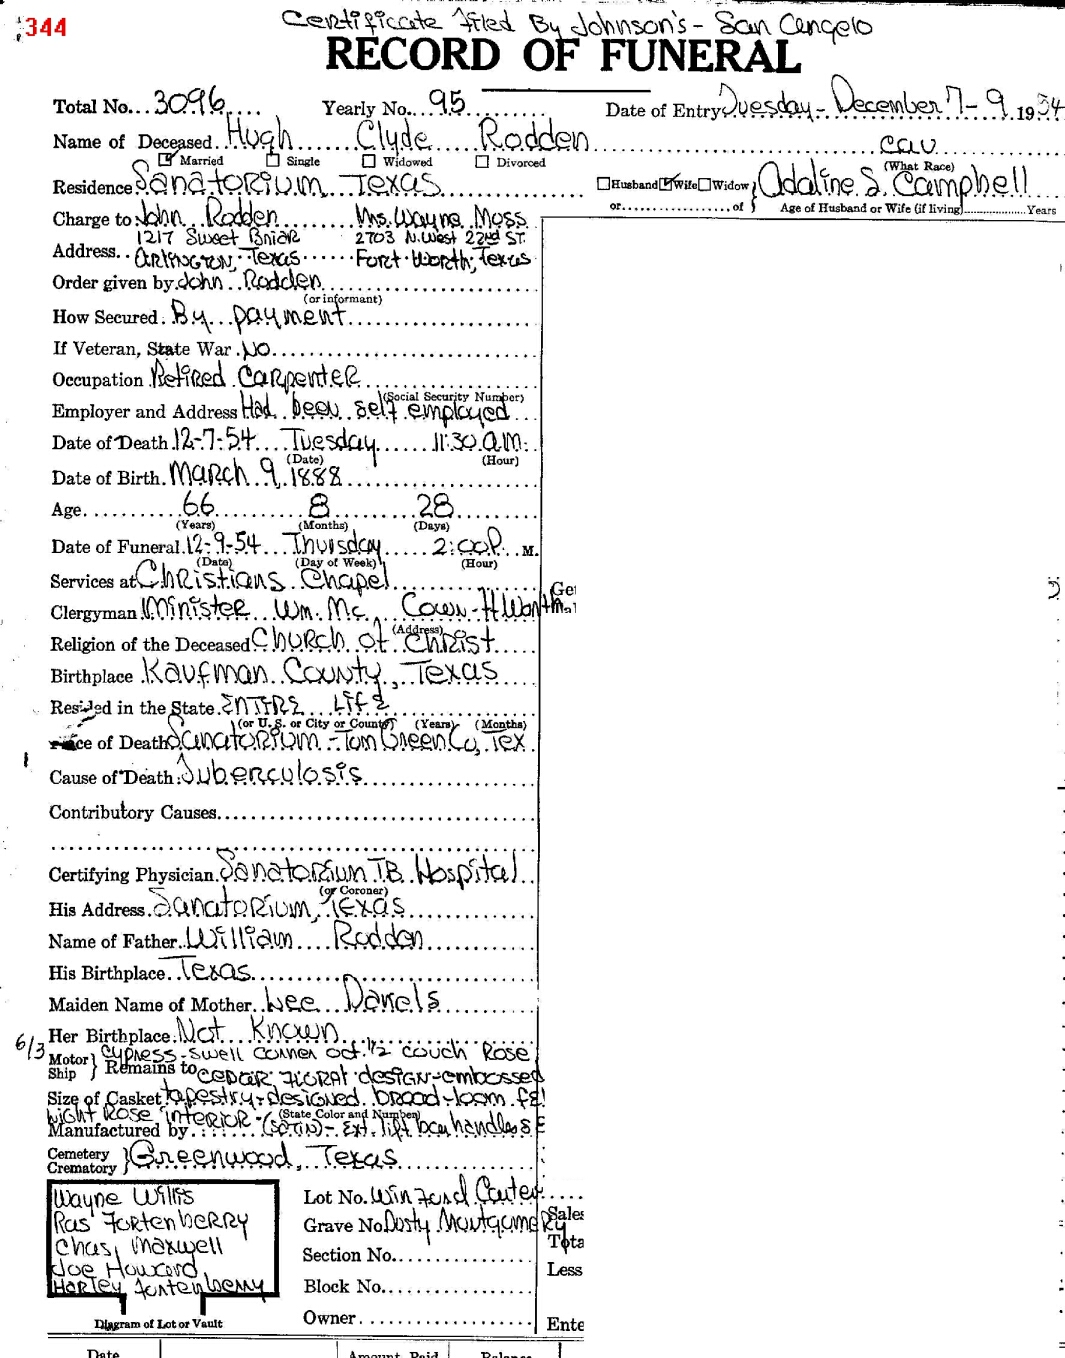 344
Certificate Filed By Johnson's - San Angelo
RECORD OF FUNERAL
Total No... 3096 Yearly No. 95 Date of Entry Tuesday - December 7-9 1954
Name of Deceased Hugh Clyde Rodden cau
Married Single Widowed Divorced (What Race)
Residence Sanatorium, Texas Husband Wife Widow Adaline S. Campbell
or of Age of Husband or Wife (if living) Years
Charge to John Rodden Mrs. Wayne Moss
1217 Sweet Briar 2703 N. West 22nd ST.
Address Arlington, Texas Fort Worth, Texas
Order given by John Rodden
(or informant)
How Secured By payment
If Veteran, State War NO
Occupation Retired Carpenter
(Social Security Number)
Employer and Address Had been self employed
Date of Death 12-7-54 Tuesday 11:30 a.m.
(Date) (Hour)
Date of Birth March 9, 1888
Age 66 8 28
(Years) (Months) (Days)
Date of Funeral 12-9-54 Thursday 2:00 P. M.
(Date) (Day of Week) (Hour)
Services at Christians Chapel
Clergyman Minister Wm. Mc Cown -
(Address)
Religion of the Deceased Church of Christ
Birthplace Kaufman County, Texas
Resided in the State ENTIRE LIFE
(or U. S. or City or County) (Years) (Months)
ce of Death Sanatorium - Tom Green Co, Tex
Cause of Death Tuberculosis
Contributory Causes
Certifying Physician Sanatorium TB Hospital
(or Coroner)
His Address Sanatorium, Texas
Name of Father William Rodden
His Birthplace Texas
Maiden Name of Mother Lee Daniels
Her Birthplace Not Known
6/3 Motor Ship Cypress-swell corner oct. 1/2 couch Rose
Remains to CEDAR FLORAL design-embossed
Size of Casket tapestry-designed broad-loom
(State Color and Number)
Light Rose interior - (SATIN) - Ext. lift bar handles
Manufactured by
Cemetery
Crematory Greenwood, Texas
Wayne Willis
Ras Fortenberry
Chas. Maxwell
Joe Howard
Harley Fortenberry
Diagram of Lot or Vault
Lot No. Winford Carter
Grave No. Dusty Montgomery
Section No.
Block No.
Owner
Sales
Tota
Less
Ente
Date Amount Paid Balance